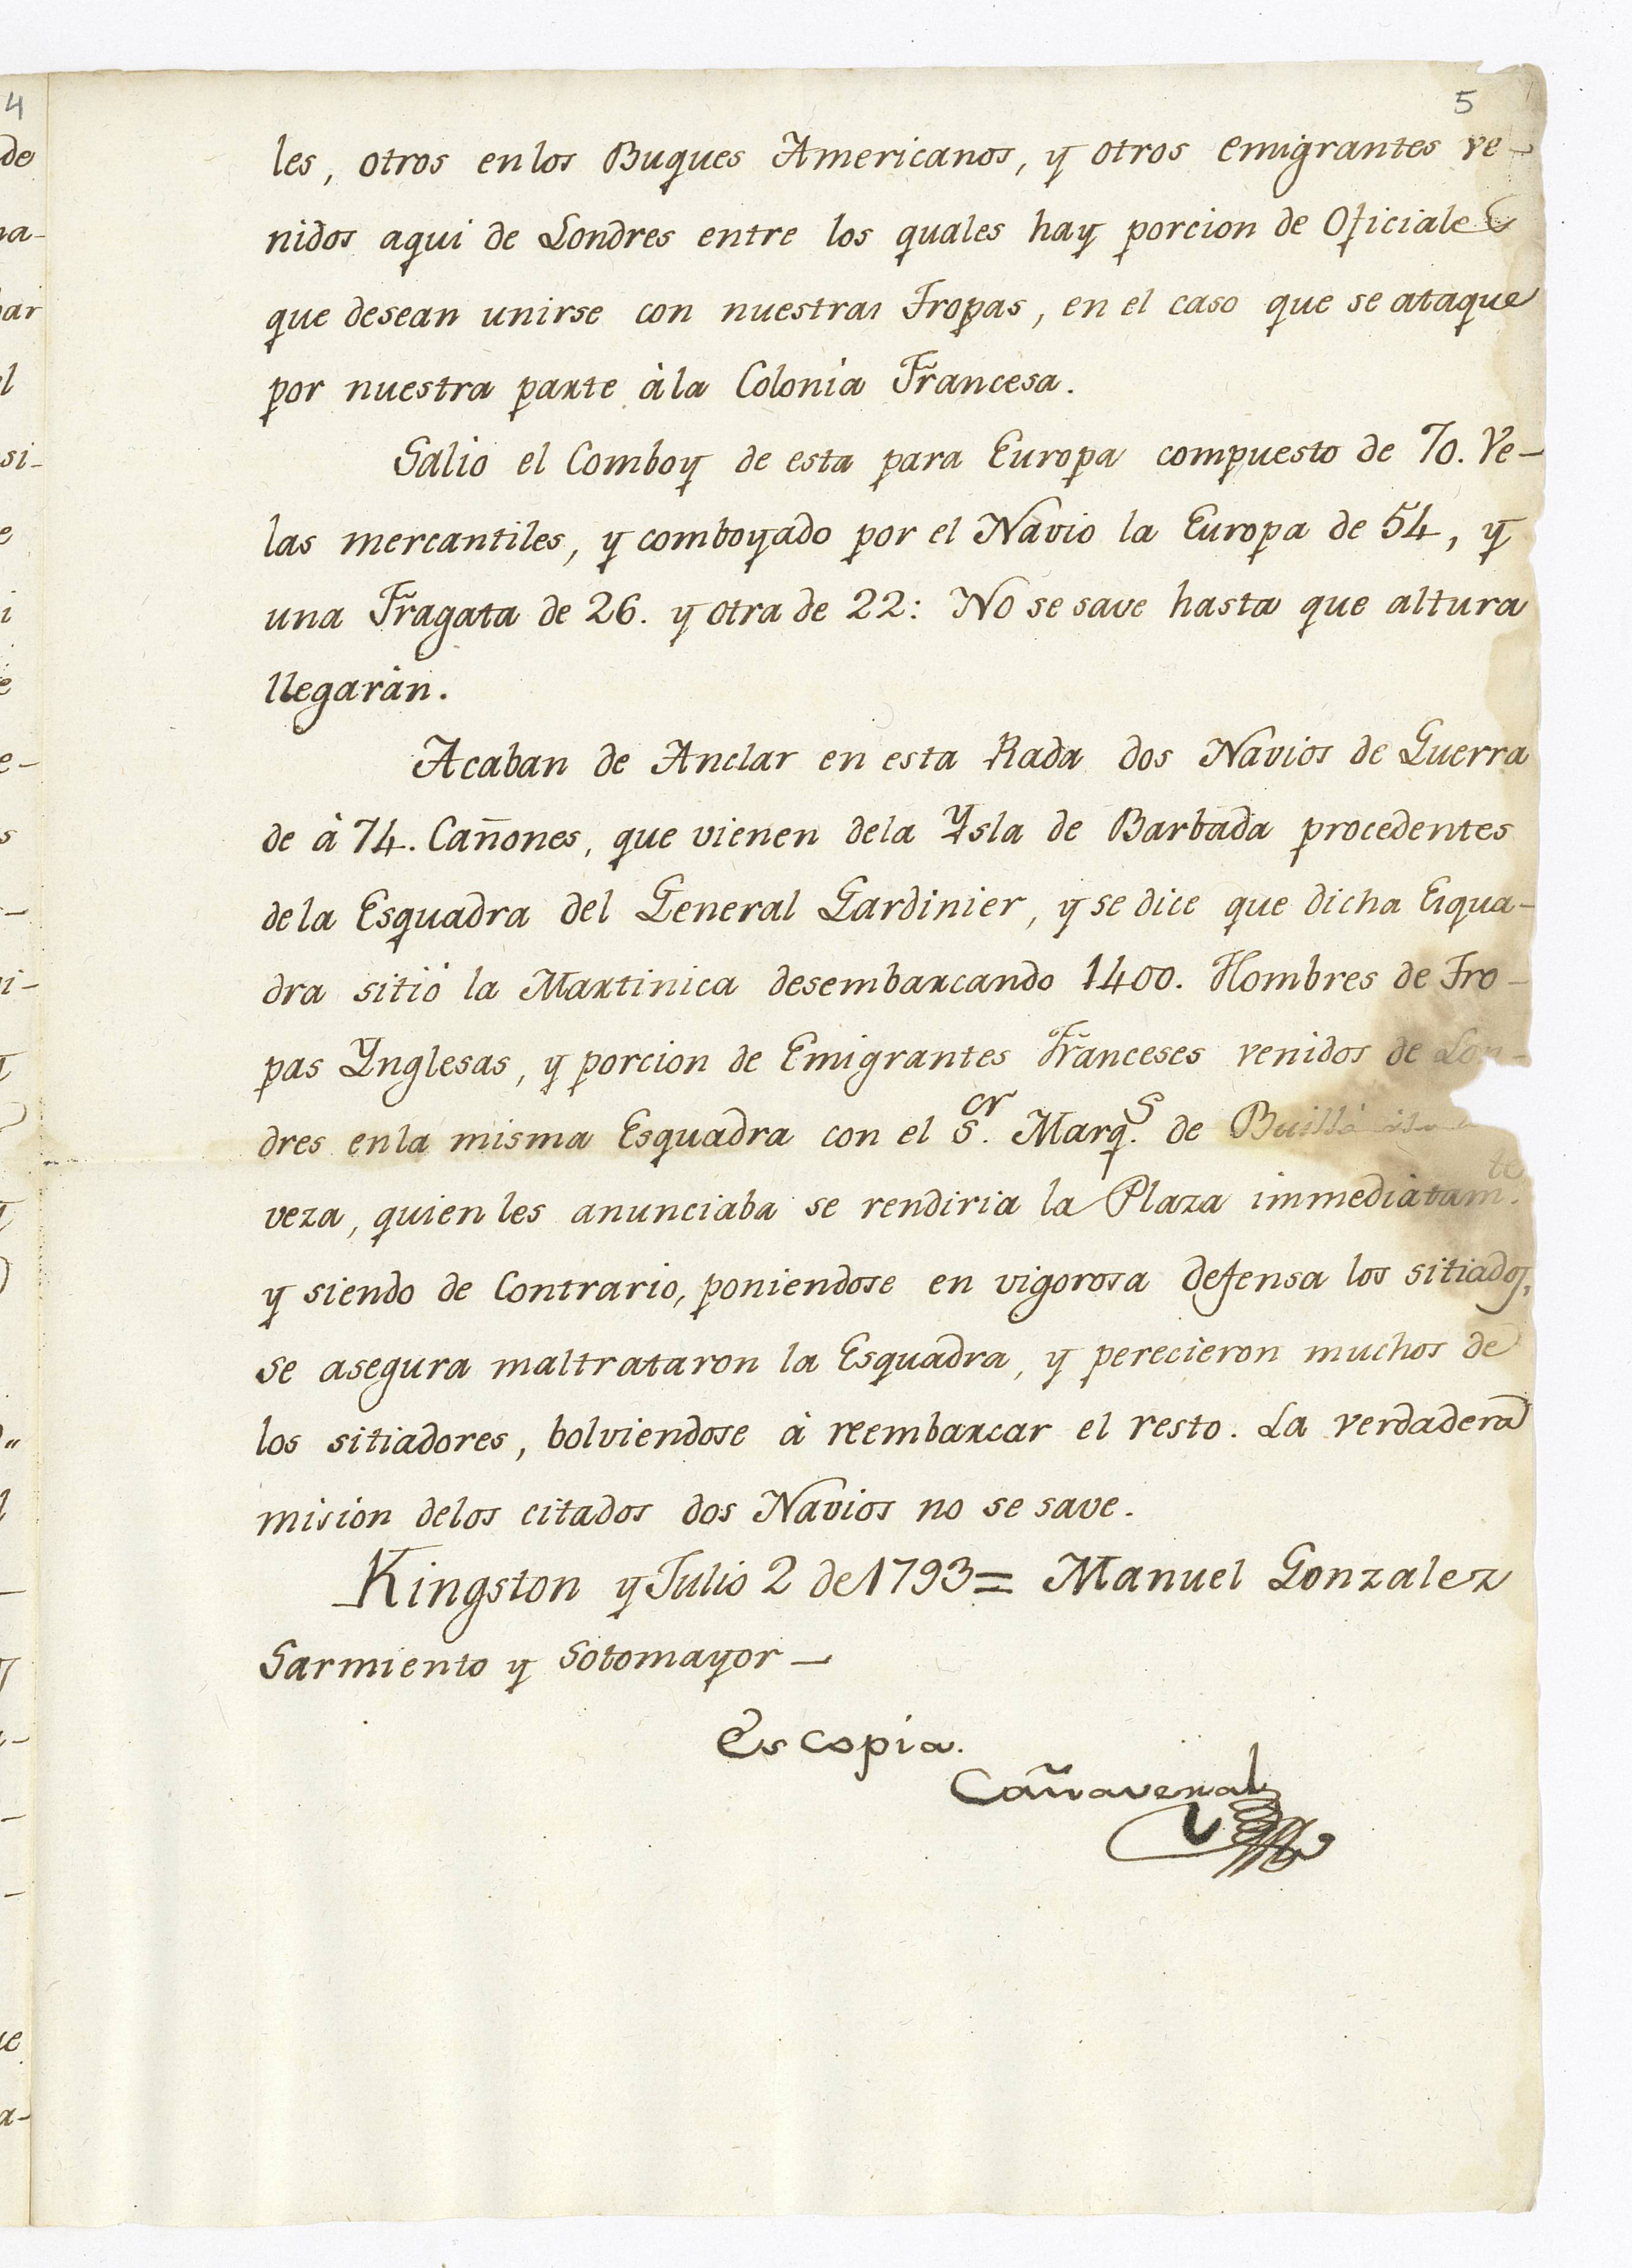 5
les, otros en los Buques Americanos, y otros emigrantes ve-
nidos aqui de Londres entre los quales hay porcion de Oficiales
que desean unirse con nuestras Tropas, en el caso que se ataque
por nuestra parte à la Colonia Francesa.
Salio el Comboy de esta para Europa compuesto de 70. Ve-
las mercantiles, y comboyado por el Navio la Europa de 54, y
una Fragata de 26. y otra de 22: No se save hasta que altura
llegaràn.
Acaban de Anclar en esta Rada dos Navios de Guerra
de à 74. Cañones, que vienen dela Ysla de Barbada procedentes
dela Esquadra del General Gardinier, y se dice que dicha Esqua-
dra sitiò la Martinica desembarcando 1400. Hombres de Tro-
pas Ynglesas, y porcion de Emigrantes Franceses venidos de Lon-
dres en la misma Esquadra con el S.or Marq.s de
veza, quien les anunciaba se rendiria la Plaza immediatam.te
y siendo de Contrario, poniendose en vigorosa defensa los sitiados,
se asegura maltrataron la Esquadra, y perecieron muchos de
los sitiadores, bolviendose à reembarcar el resto. La verdadera
mision delos citados dos Navios no se save.
Kingston y Julio 2 de 1793 = Manuel Gonzalez
Sarmiento y Sotomayor —
Es copia.
Cañaveral
4